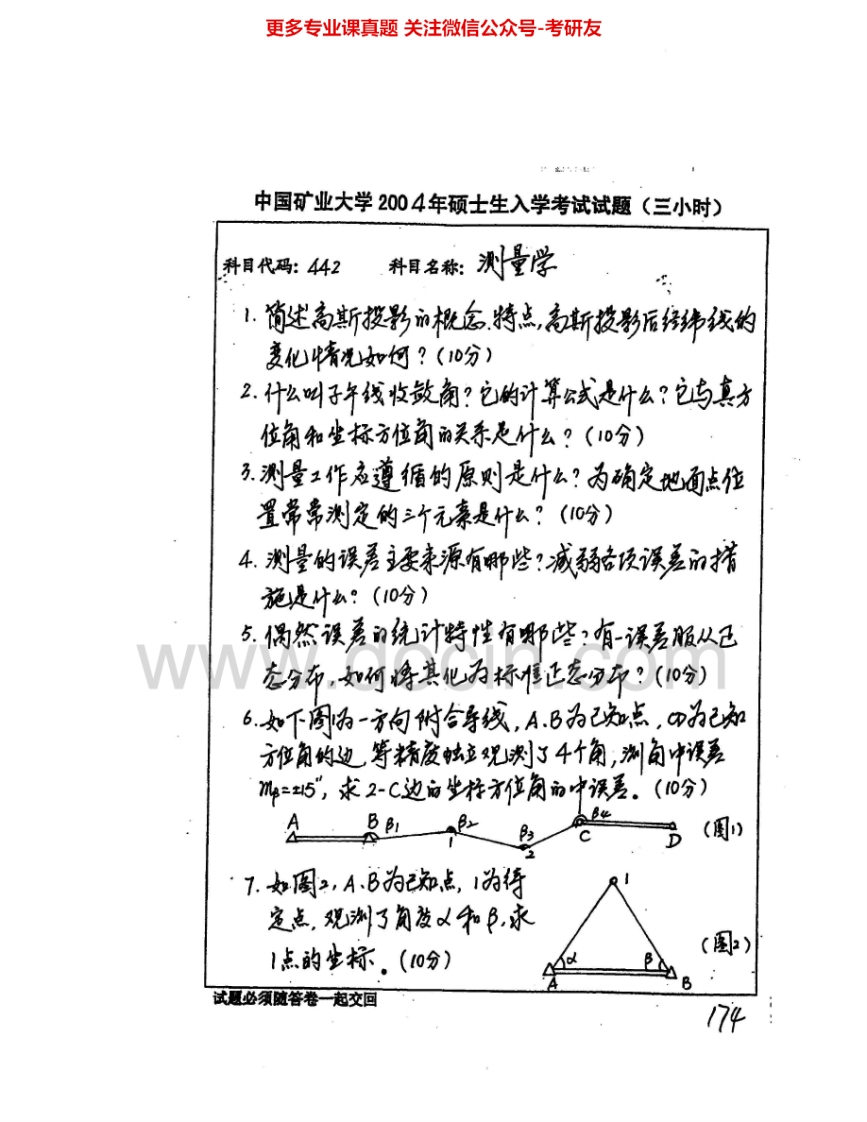 更多专业课真题 关注微信公众号-考研友
中国矿业大学2004年硕士生入学考试试题（三小时）
科目代码：442 科目名称：测量学
1. 简述高斯投影的概念.特点,高斯投影后经纬线的
变化情况如何？(10分)
2. 什么叫子午线收敛角？它的计算公式是什么？它与真方
位角和坐标方位角的关系是什么？(10分)
3. 测量工作应遵循的原则是什么？为确定地面点位
置常常测定的三个元素是什么？(10分)
4. 测量的误差主要来源有哪些？减弱各项误差的措
施是什么？(10分)
5. 偶然误差的统计特性有哪些？有一误差服从正
态分布,如何将其化为标准正态分布？(10分)
www.docin.com
6. 如下图为一方向附合导线, A.B为已知点, CD为已知
方位角的边,等精度独立观测了4个角,测角中误差
mβ=±15″, 求2-C边的坐标方位角的中误差。(10分)
A B β1 1 β2 β3 2 C β4 D (图1)
7. 如图2, A.B为已知点, 1为待
定点, 观测了角度α和β,求
1点的坐标。(10分)
1
α β
A B
(图2)
试题必须随答卷一起交回
174